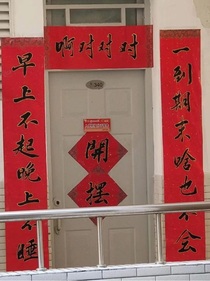 啊对对对
一到期末啥也不会
早上不起晚上不睡
開
摆